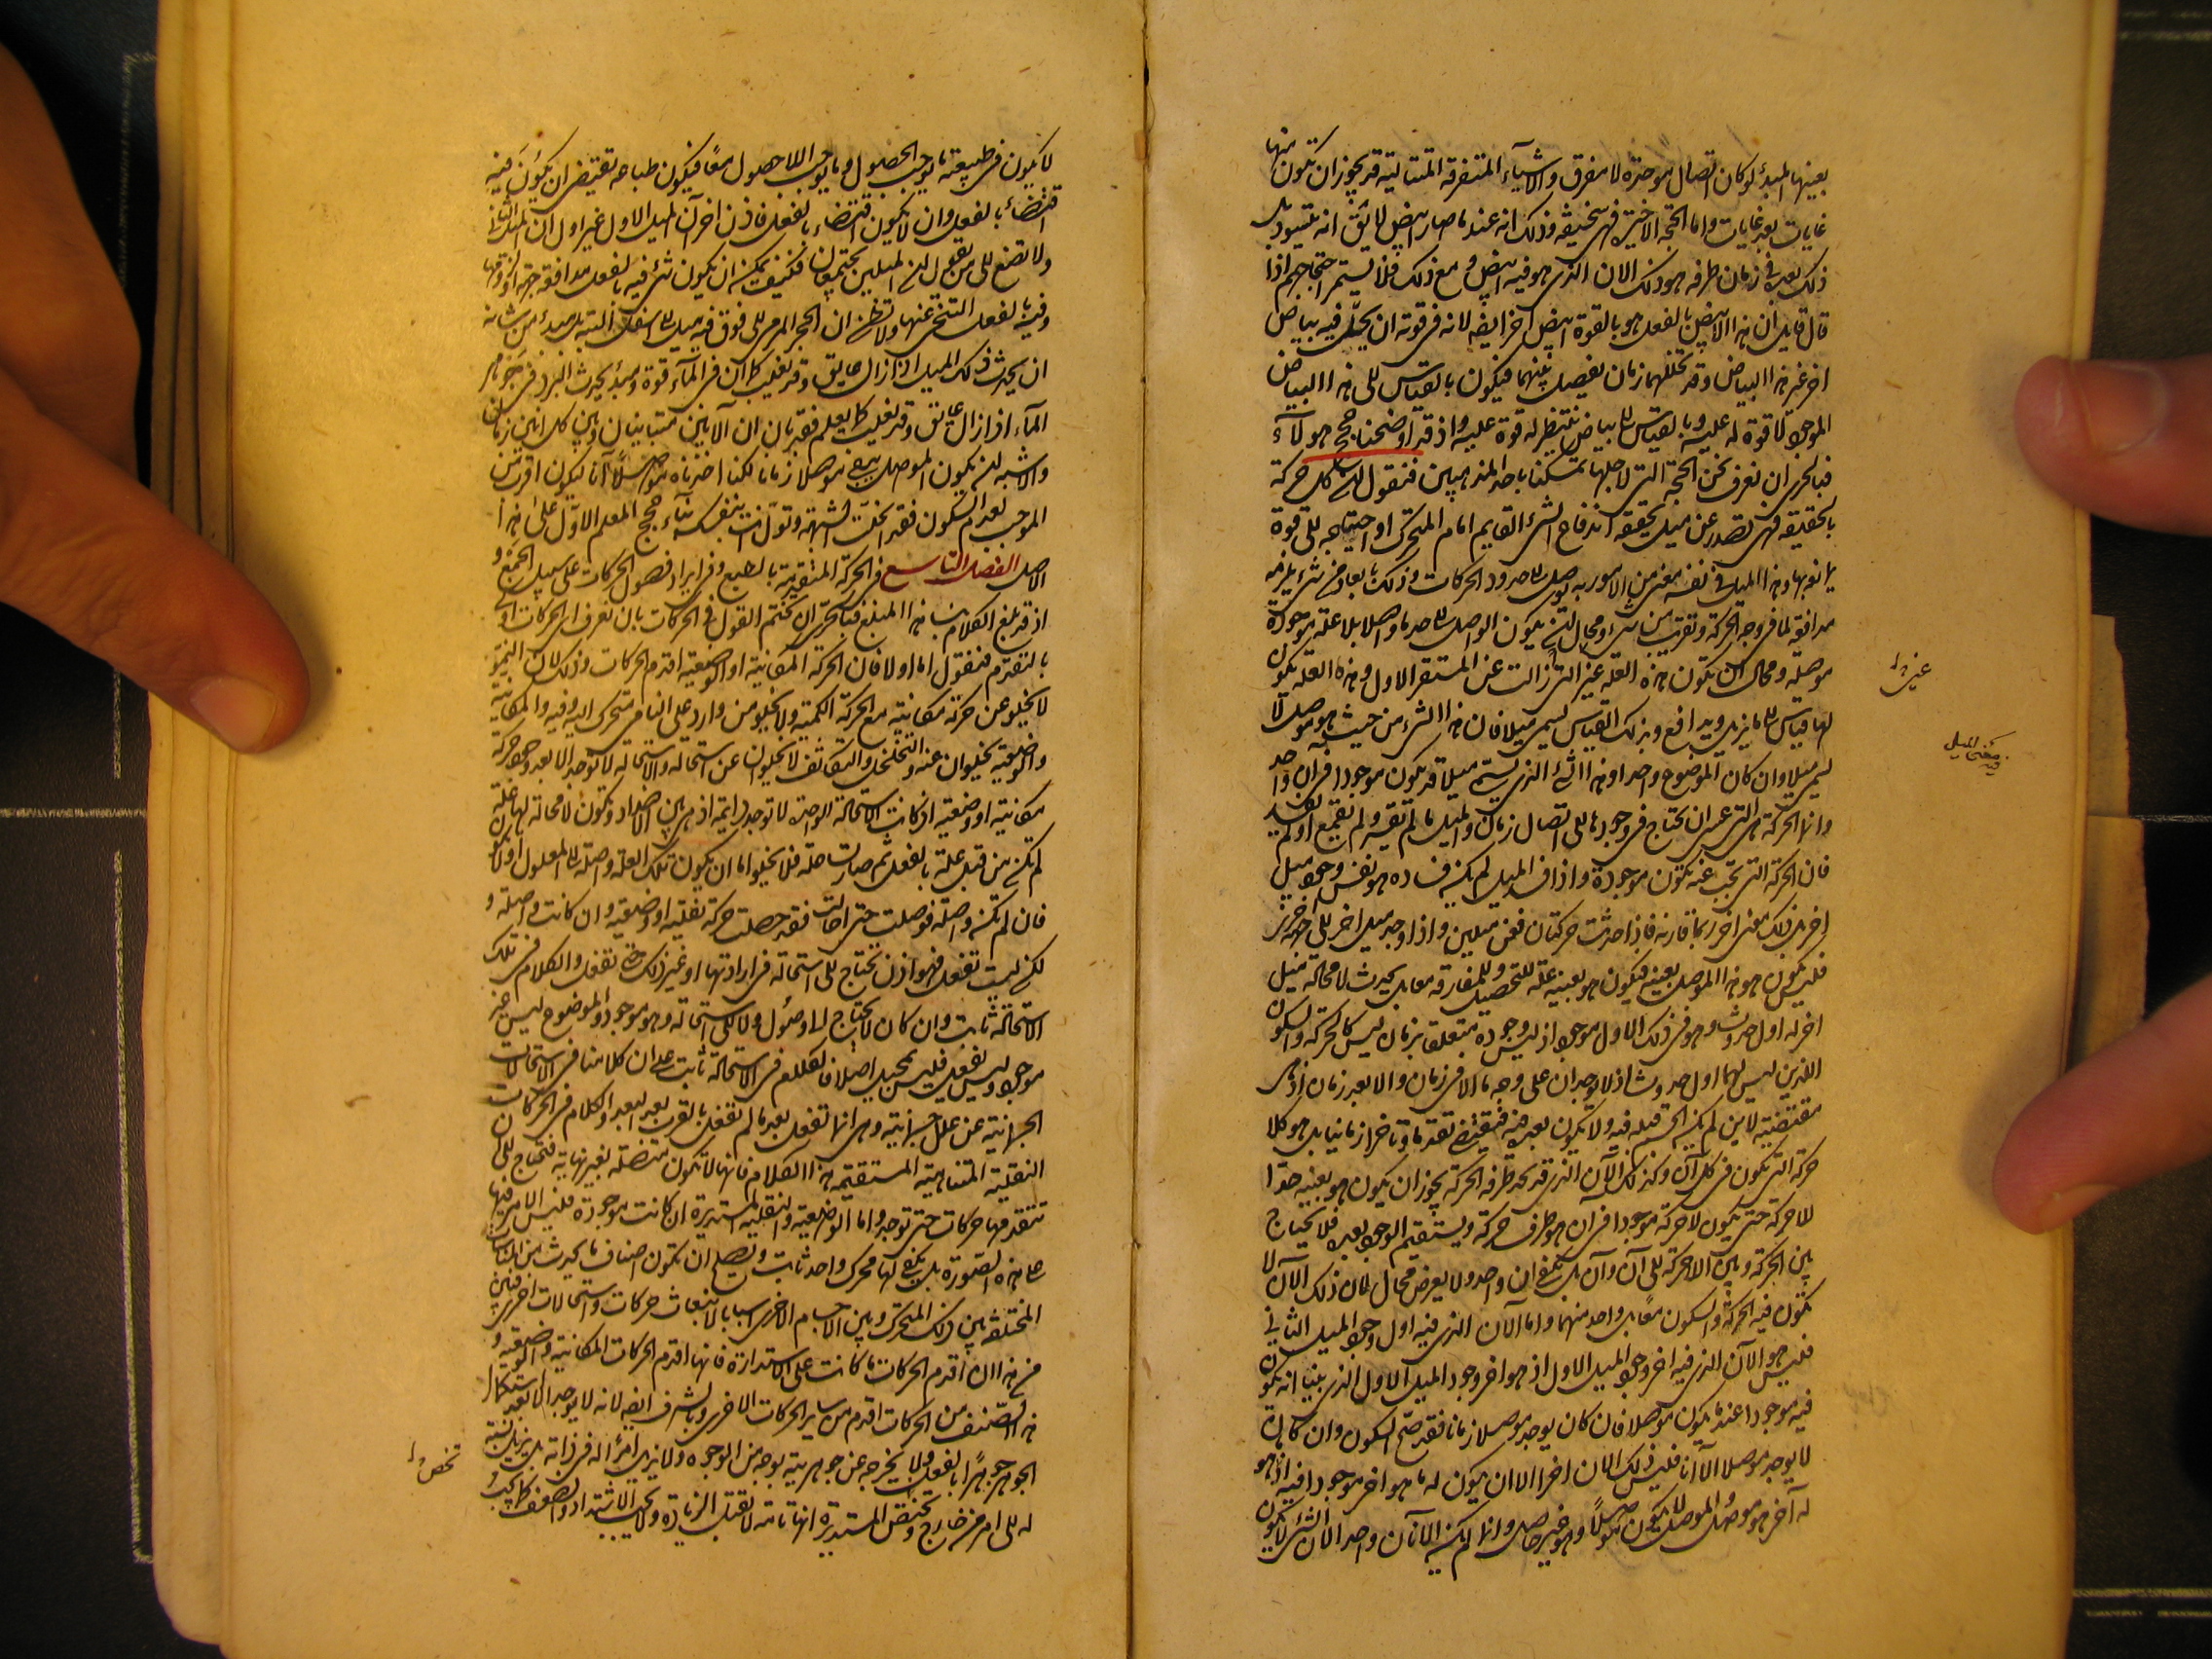 بعينها المبدأ لو كان اتصال موحدة لا مفرق والاشياء المتفرقة المتتالية قد يجوز ان تكون منها
غايات بعد غايات واما الحجة الاخيرة فهي سخيفة وذلك انه عند ما صار ابيض لا يثق انه يتسود بل
ذلك بعده في زمان طرفه هو ذلك الان الذي هو فيه ابيض ومع ذلك فلا يستمر احتجاجهم اذا
قال قايل ان هذا الابيض بالفعل هو بالقوة ابيض آخر ايضا لانه في قوته ان يحل فيه بياض
اخر غير هذا البياض وقد تخللهما زمان يفصل بينهما فيكون بالقياس الى هذا البياض
الموجود لا قوة له عليه وبالقياس الى بياض ينتظر له قوة عليه واذ قد اوضحنا حجج هولاء
فبالحرى ان نعرف نحن الحجة التي لاجلها تمسكنا باحد المذهبين فنقول ان كل حركة
بالحقيقة فهي تصدر عن ميل يحققه اندفاع الشيء القايم امام المتحرك او احتياجه الى قوة
يمانعه بها وهذا الميل في نفسه معنى من الامور به يوصل الى حدود الحركات وذلك بابعاد من شيء يلزمه
مدافعة لما في وجه الحركة وتقريب من شيء ومحال ان يكون الواصل الى حد ما واصلا بلا علة موجودة
موصلة ومحال ان تكون هذه العلة غير التي ازالت عن المستقر الاول وهذه العلة تكون
لها قياس الى ما يزيل ويدافع وبذلك القياس يسمى ميلا فان هذا الشيء من حيث هو موصل لا
يسمى ميلا وان كان الموضوع واحدا وهذا الشيء الذي يسمى ميلا قد يكون موجودا في آن واحد
وانما الحركة هي التي عسى ان تحتاج في وجودها الى اتصال زمان والميل ما لم يقسر ولم يقمع او لم يفسد
فان الحركة التي تجب عنه تكون موجودة واذا فسد الميل لم يكن فساده هو نفس وجود ميل
اخر بل ذلك معنى اخر ربما قارنه فاذا حدثت حركتان فعن ميلين واذا وجد ميل اخر الى جهة اخرى
فليس يكون هو هذا الموصل بعينه فيكون هو بعينه علة للتحصيل وللمفارقة معا بل يحدث لا محالة ميل
اخر له اول حدوث وهو في ذلك الاول موجود اذ ليس وجوده متعلقا بزمان ليس كالحركة والسكون
اللذين ليس لهما اول حدوث اذ لا يوجدان على وجه ما الا في زمان والا بعد زمان اذ هي
مقتضية لاين لم يكن الجسم قبله فيه ولا يكون بعده فيه فيقتضي تقدما وتاخرا زمانيا بل هو كلا
حركة التي تكون في كل آن وكذلك الآن الذي قد يحد طرف الحركة يجوز ان يكون هو بعينه حدا
للا حركة حتى يكون لا حركة موجودا في آن هو طرف حركة ويستقيم الوجود بعده فلا يحتاج
بين الحركة وبين اللاحركة الى آن وآن بل يكفي ان واحد ولا يعرض محال لان ذلك الآن لا
تكون فيه الحركة والسكون معا بل واحد منهما واما الآن الذي فيه اول وجود الميل الثاني
فليس هو الآن الذي فيه اخر وجود الميل الاول اذ هو اخر وجود الميل الاول الذي بينا انه يكون
فيه موجودا عند ما يكون موصلا فان كان يوجد موصلا زمانا فقد صح السكون وان كان
لا يوجد موصلا الا آنا فليس ذلك الان اخرا الا ان يكون له ما هو اخر موجود فيه اذ هو
له آخر هو موصل والموصل لا يكون موصلا وهو غير حاصل وانما لم يكن الآنان واحدا لان الشيء لا يكون
فيه معنى الميل
لا يكون في طبيعته ما يوجب الحصول وما يوجب اللاحصول معا فيكون طباعه تقتضي ان يكون فيه
اقتضاء بالفعل وان لا يكون اقتضاء بالفعل فاذن اخر آن الميل الاول غير اول آن الميل الثاني
ولا تصغ الى من يقول ان الميلين يجتمعان فكيف يمكن ان يكون شيء فيه بالفعل مدافعة جهة او لزومها
وفيه بالفعل التنحي عنها ولا تظن ان الحجر المرمي الى فوق فيه ميل الى اسفل البتة بل مبدأ من شانه
ان يحدث ذلك الميل اذا زال عايق وقد يغلب كما ان في الماء قوة ومبدأ يحدث البرد في جوهر
الماء اذا زال عايق وقد يغلب كما يعلم فقد بان ان الآنين متباينان وبين كل انين زمان
والاشبه ان يكون الموصل يبقى موصلا زمانا لكنا اخذناه موصلا آنا ليكون اقرب من
الموجب لعدم السكون فقد انحلت الشبهة وتول انت بنفسك بناء حجج المعلم الاول على هذا
الاصل الفصل التاسع في الحركة المتقدمة بالطبع وفي ايراد فصول الحركات على سبيل الجمع و
اذ قد بلغ الكلام بنا هذا المبلغ فبالحرى ان نختم القول في الحركات بان نعرف اي الحركات اولى
بالتقدم فنقول اما اولا فان الحركة المكانية او الوضعية اقدم الحركات وذلك لان النمو
لا يخلو عن حركة مكانية مع الحركة الكمية ولا يخلو من وارد على النامي متحرك اليه وفيه والمكانية
والوضعية يخلوان عنه والتخلخل والتكاثف لا يخلوان عن استحالة والاستحالة لا توجد الا بعد وجود حركة
مكانية او وضعية اذ كانت الاستحالة الواحدة لا توجد دايمة اذ هي بين الاضداد وتكون لا محالة لها علة
لم تكن من قبل علة بالفعل ثم صارت علة فلا يخلوا اما ان يكون تلك العلة واصلة الى المعلول او لا تكون
فان لم تكن واصلة فوصلت حتى احالت فقد حصلت حركة نقلية او وضعية وان كانت واصلة و
لكن ليست تفعل فهو اذن تحتاج الى استحالة في ارادتها او غير ذلك حتى تفعل والكلام في تلك
الاستحالة ثابت وان كان لا يحتاج الى وصول ولا الى استحالة وهو موجود والموضوع ليس غير
موجود وليس يفعل فليس بمحيل اصلا فالكلام في الاستحالة ثابت على ان كلامنا في الاستحالات
الجسمانية عن علل جسمانية وهي انها تفعل بعد ما لم تفعل بالقرب بعد البعد والكلام في الحركات
النقلية المتناهية المستقيمة هذا الكلام فانها لا تكون متصلة بغير نهاية فتحتاج الى ان
تتقدمها حركات حتى توجد واما الوضعية والنقلية المستديرة ان كانت موجودة فليس الامر فيها
على هذه الصورة بل يكفي لها محرك واحد ثابت ويصلح ان تكون اصناف ما يحدث من المناسبات
المختلفة بين ذلك المتحرك وبين الاجسام الاخرى اسبابا لانبعاث حركات واستحالات اخرى فبين
من هذا ان اقدم الحركات ما كانت على الاستدارة فانها اقدم الحركات المكانية والوضعية و
هذا الصنف من الحركات اقدم من ساير الحركات الاخرى وبالشرف ايضا لانه لا يوجد الا بعد استكمال
الجوهر جوهرا بالفعل ولا يخرجه عن جوهريته بوجه من الوجوه ولا يزيل امرا له في ذاته بل يزيل نسبة
له الى امر من خارج وتختص المستديرة انها تامة لا تقبل الزيادة ولا يجب الاشتداد والضعف كما يجب